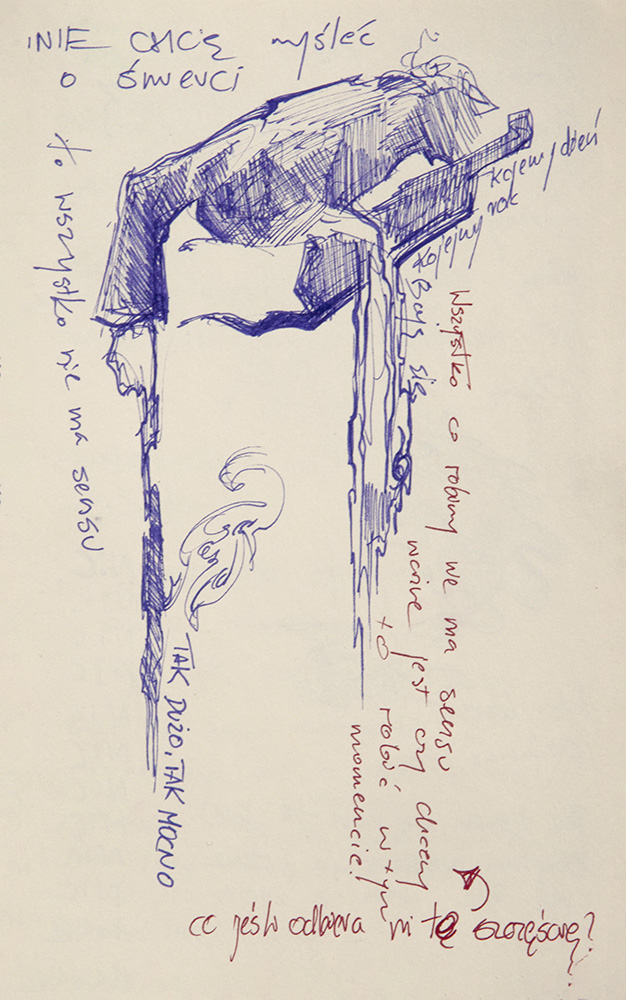 NIE CHCĘ myśleć
o śmierci
to wszystko nie ma sensu
kolejny dzień
kolejny rok
Boję się
Wszystko co robimy nie ma sensu
ważne jest czy chcemy
to robić w tym
momencie!
TAK DUŻO, TAK MOCNO
co jeśli odbiera mi to szczęście?